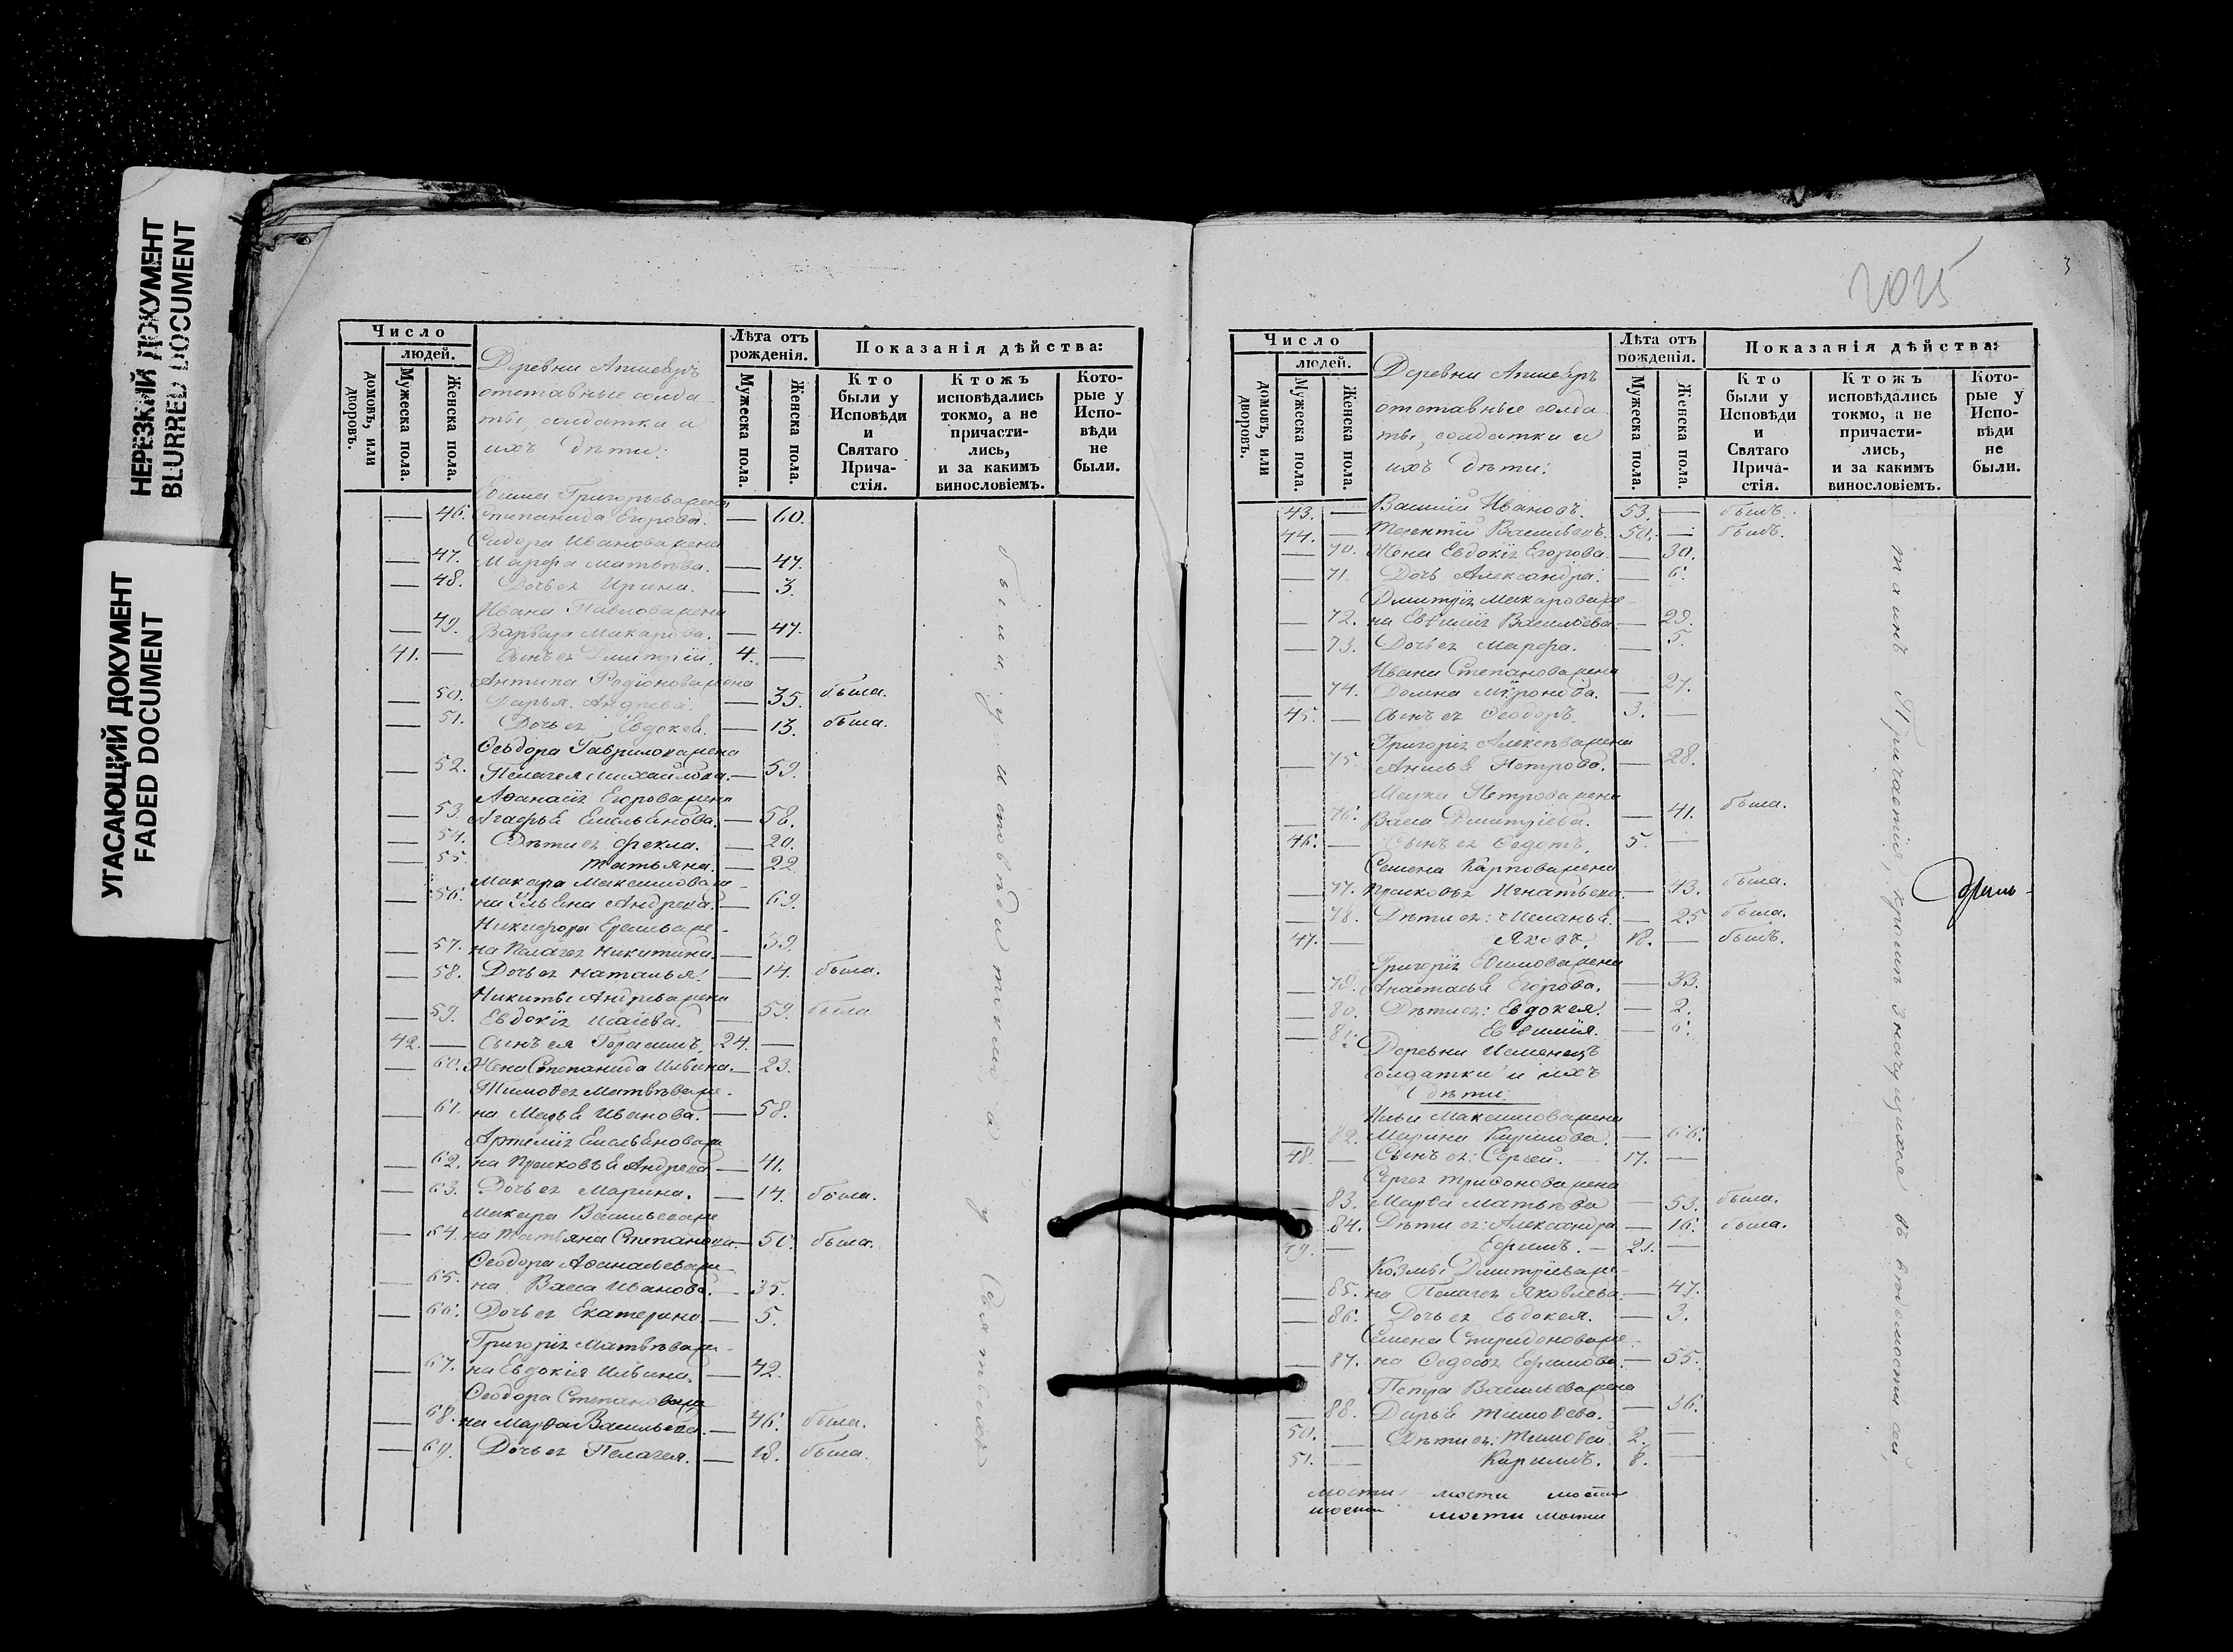 НЕРЕЗКИЙ ДОКУМЕНТ
BLURRED DOCUMENT
УГАСАЮЩИЙ ДОКУМЕНТ
FADED DOCUMENT
Число
людей.
домовъ, или дворовъ.
Мужеска пола.
Женска пола.
Деревни Апшеяръ
отставные солда
ты, солдатки и
ихъ дѣти:
Лѣта отъ рожденія.
Мужеска пола.
Женска пола.
Показанія дѣйства:
Кто были у Исповѣди и Святаго Прича-стія.
Ктожъ исповѣдались токмо, а не причасти-лись, и за какимъ винословіемъ.
Кото-рые у Испо-вѣди не были.
Ефима Григорьева жена
— 46. Степанида Егорова. — 60.
Сидора Иванова жена
— 47. Марфа Матвѣева. — 47.
— 48. Дочь ея Ирина. — 3.
Ивана Павлова жена
— 49. Варвара Макарова. — 47.
41. — Сынъ ея Дмитрій. 4. —
Антипа Родіонова жена
— 50. Дарья Андрева. — 35. была.
— 51. Дочь ея Евдокея. — 13. была.
Ѳеодора Гаврилова жена
— 52. Пелагея Михайлова. — 59.
Аѳанасія Егорова жена
— 53. Агафья Емельянова. — 58.
— 54. Дѣти ея Фекла. — 20.
— 55. Татьяна. — 22.
Макара Максимова же-
— 56. на Ульяна Андрева. — 69.
Никифора Еремѣева же-
— 57. на Пелагея Никитина. — 39.
— 58. Дочь ея Наталья. — 14. была.
Никиты Андрева жена
— 59. Евдокія Исаіева. — 59. была
42. — Сынъ ея Герасимъ. 24. —
— 60. Жена Степанида Ильина. — 23.
Тимоѳея Матвѣева же-
— 61. на Марья Иванова. — 58.
Артемія Емельянова же
— 62. на Прасковья Андрева — 41.
— 63. Дочь ея Марина. — 14. была.
Макара Васильева же
— 64. на Татьяна Степанова. — 50. была.
Ѳеодора Аѳанасьева же-
— 65. на Васса Иванова. — 35.
— 66. Дочь ея Екатерина — 5.
Григорія Матвѣева же-
— 67. на Евдокія Ильина. — 42.
Ѳеодора Степанова же
— 68. на Марѳа Васильева. — 46. была.
— 69. Дочь ея Пелагея. — 18. была.
были у исповѣди токмо а у Святыхъ
2025
3
Число
людей.
домовъ, или дворовъ.
Мужеска пола.
Женска пола.
Деревни Апшеяръ
отставные солда
ты, солдатки и
ихъ дѣти:
Лѣта отъ рожденія.
Мужеска пола.
Женска пола.
Показанія дѣйства:
Кто были у Исповѣди и Святаго Прича-стія.
Ктожъ исповѣдались токмо, а не причасти-лись, и за какимъ винословіемъ.
Кото-рые у Испо-вѣди не были.
43. — Василій Ивановъ. 53. — былъ.
44. — Терентій Васильевъ. 50. — былъ.
— 70. Жена Евдокія Егорова. — 30.
— 71. Дочь Александра. — 6.
Дмитрія Макарова же-
— 72. на Евѳимія Васильева. — 29.
— 73. Дочь ея Марфа. — 5.
Ивана Степанова жена
— 74. Домна Миронова. — 27.
45. — Сынъ ея Ѳеодоръ. 3. —
Григорія Алексѣва жена
— 75. Анисья Петрова. — 28.
Марка Петрова жена
— 76. Васса Дмитріева. — 41. была.
46. — Сынъ ея Ѳедотъ. 5. —
Семена Карпова жена
— 77. Прасковья Игнатьева — 43. была.
— 78. Дѣти ея: Меланья. — 25 была.
47. — Яковъ. 18. — былъ.
Григорія Ефимова жена
— 79. Анастасья Егорова. — 33.
— 80. Дѣти ея: Евдокея. — 2.
— 81. Евѳимія. — 6.
Деревни Исменецъ
солдатки и ихъ
дѣти:
Ильи Максимова жена
— 82. Марина Кирилова. — 66.
48. — Сынъ ея: Сергей. 17. —
Сергея Трифонова жена
— 83. Марѳа Матвѣева — 53. была.
84. Дѣти ея: Александра — 16. была.
49. — Ефимъ. — 21. —
Козмы Дмитріева же-
— 85. на Пелагея Яковлева. — 47.
— 86. Дочь ея Евдокея. — 3.
Семена Спиридонова же-
— 87. на Ѳедосья Ефимова. — 55.
Петра Васильева жена
— 88. Дарья Тимоѳева. — 36.
50. — Дѣти ея: Тимоѳей. 2. —
51. — Кирилъ. 8. —
мости мости мости
мости мости мости
таинъ Причастія, кромѣ значущихся въ вѣдомости сей,